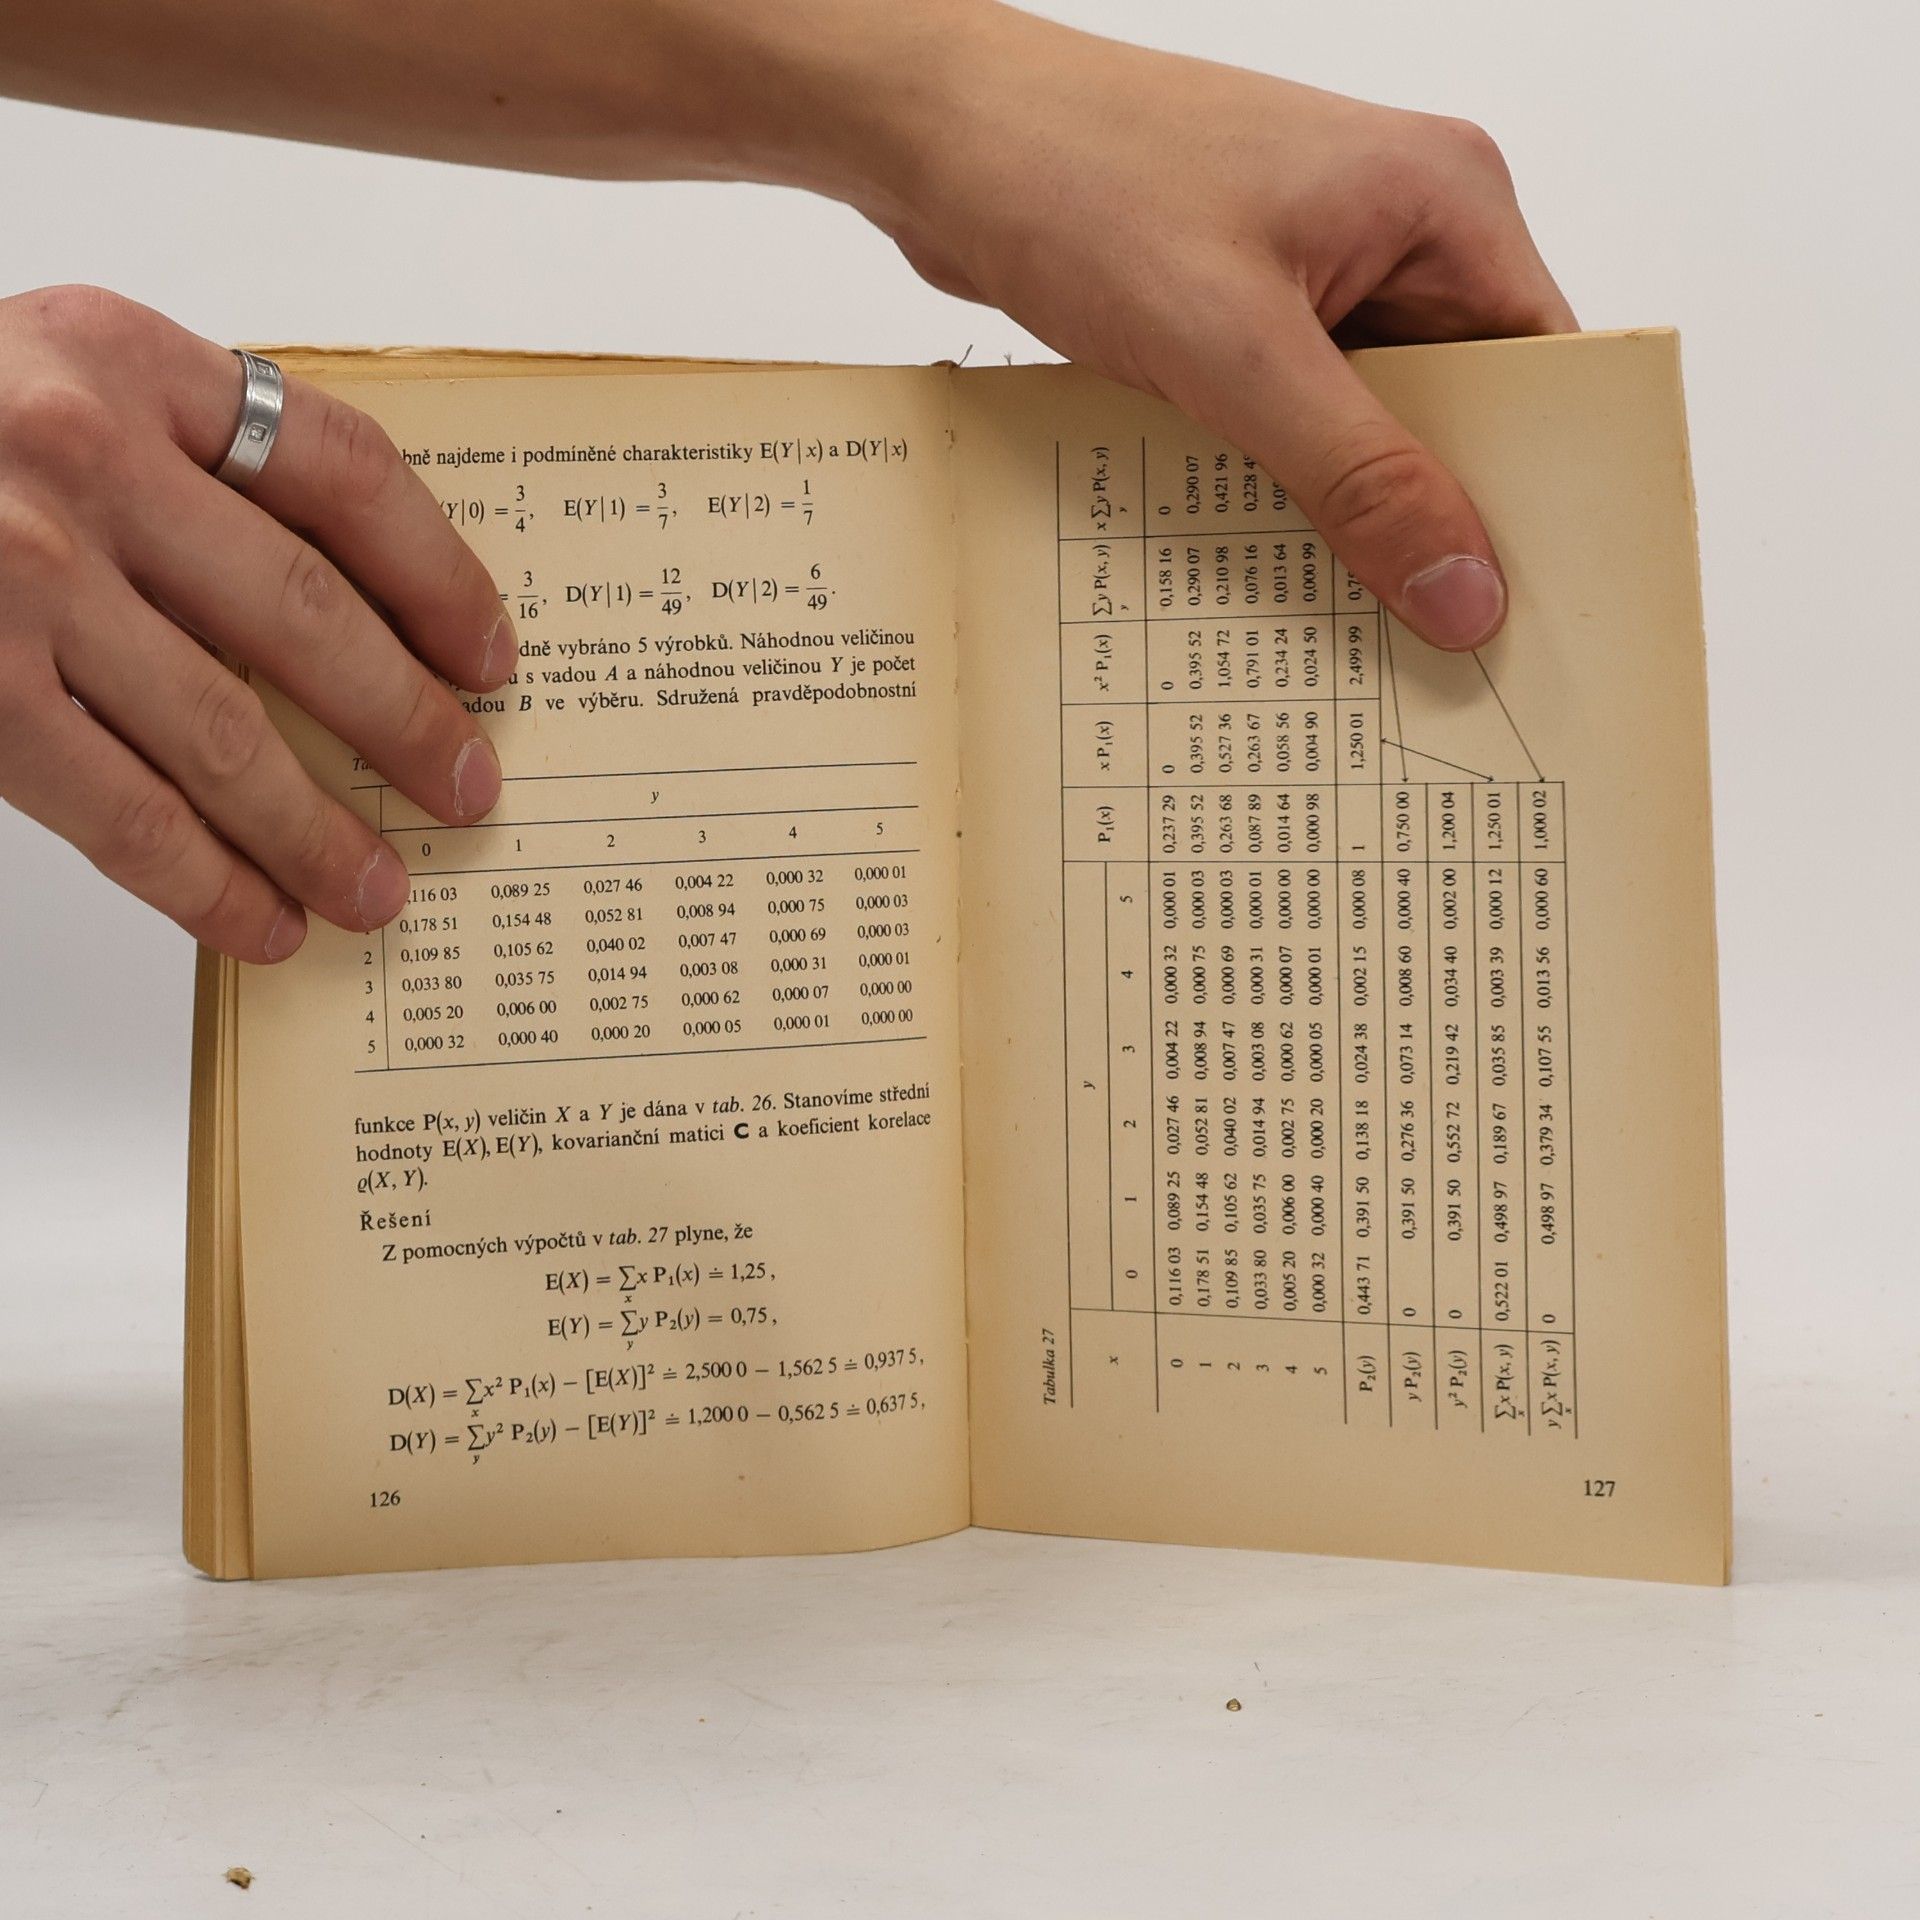 najdeme i podmíněné charakteristiky E(Y | x) a D(Y | x)
Y | 0) = 3/4, E(Y | 1) = 3/7, E(Y | 2) = 1/7
= 3/16, D(Y | 1) = 12/49, D(Y | 2) = 6/49.
vybráno 5 výrobků. Náhodnou veličinou
s vadou A a náhodnou veličinou Y je počet
B ve výběru. Sdružená pravděpodobnostní
y
0 1 2 3 4 5
116 03 0,089 25 0,027 46 0,004 22 0,000 32 0,000 01
0,178 51 0,154 48 0,052 81 0,008 94 0,000 75 0,000 03
2 0,109 85 0,105 62 0,040 02 0,007 47 0,000 69 0,000 03
3 0,033 80 0,035 75 0,014 94 0,003 08 0,000 31 0,000 01
4 0,005 20 0,006 00 0,002 75 0,000 62 0,000 07 0,000 00
5 0,000 32 0,000 40 0,000 20 0,000 05 0,000 01 0,000 00
funkce P(x, y) veličin X a Y je dána v tab. 26. Stanovíme střední
hodnoty E(X), E(Y), kovarianční matici C a koeficient korelace
ϱ(X, Y).
Řešení
Z pomocných výpočtů v tab. 27 plyne, že
E(X) = ∑x x P₁(x) ≐ 1,25 ,
E(Y) = ∑y y P₂(y) = 0,75 ,
D(X) = ∑x x² P₁(x) − [E(X)]² ≐ 2,500 0 − 1,562 5 ≐ 0,937 5 ,
D(Y) = ∑y y² P₂(y) − [E(Y)]² ≐ 1,200 0 − 0,562 5 ≐ 0,637 5 ,
126
Tabulka 27
x y P₁(x) x P₁(x) x² P₁(x) ∑y y P(x, y) x ∑y y P(x, y)
0 1 2 3 4 5
0 0,116 03 0,089 25 0,027 46 0,004 22 0,000 32 0,000 01 0,237 29 0 0 0,158 16 0
1 0,178 51 0,154 48 0,052 81 0,008 94 0,000 75 0,000 03 0,395 52 0,395 52 0,395 52 0,290 07 0,290 07
2 0,109 85 0,105 62 0,040 02 0,007 47 0,000 69 0,000 03 0,263 68 0,527 36 1,054 72 0,210 98 0,421 96
3 0,033 80 0,035 75 0,014 94 0,003 08 0,000 31 0,000 01 0,087 89 0,263 67 0,791 01 0,076 16
4 0,005 20 0,006 00 0,002 75 0,000 62 0,000 07 0,000 00 0,014 64 0,058 56 0,234 24 0,013 64
5 0,000 32 0,000 40 0,000 20 0,000 05 0,000 01 0,000 00 0,000 98 0,004 90 0,024 50 0,000 99
P₂(y) 0,443 71 0,391 50 0,138 18 0,024 38 0,002 15 0,000 08 1 1,250 01 2,499 99
y P₂(y) 0 0,391 50 0,276 36 0,073 14 0,008 60 0,000 40 0,750 00
y² P₂(y) 0 0,391 50 0,552 72 0,219 42 0,034 40 0,002 00 1,200 04
∑x x P(x, y) 0,522 01 0,498 97 0,189 67 0,035 85 0,003 39 0,000 12 1,250 01
y ∑x x P(x, y) 0 0,498 97 0,379 34 0,107 55 0,013 56 0,000 60 1,000 02
127